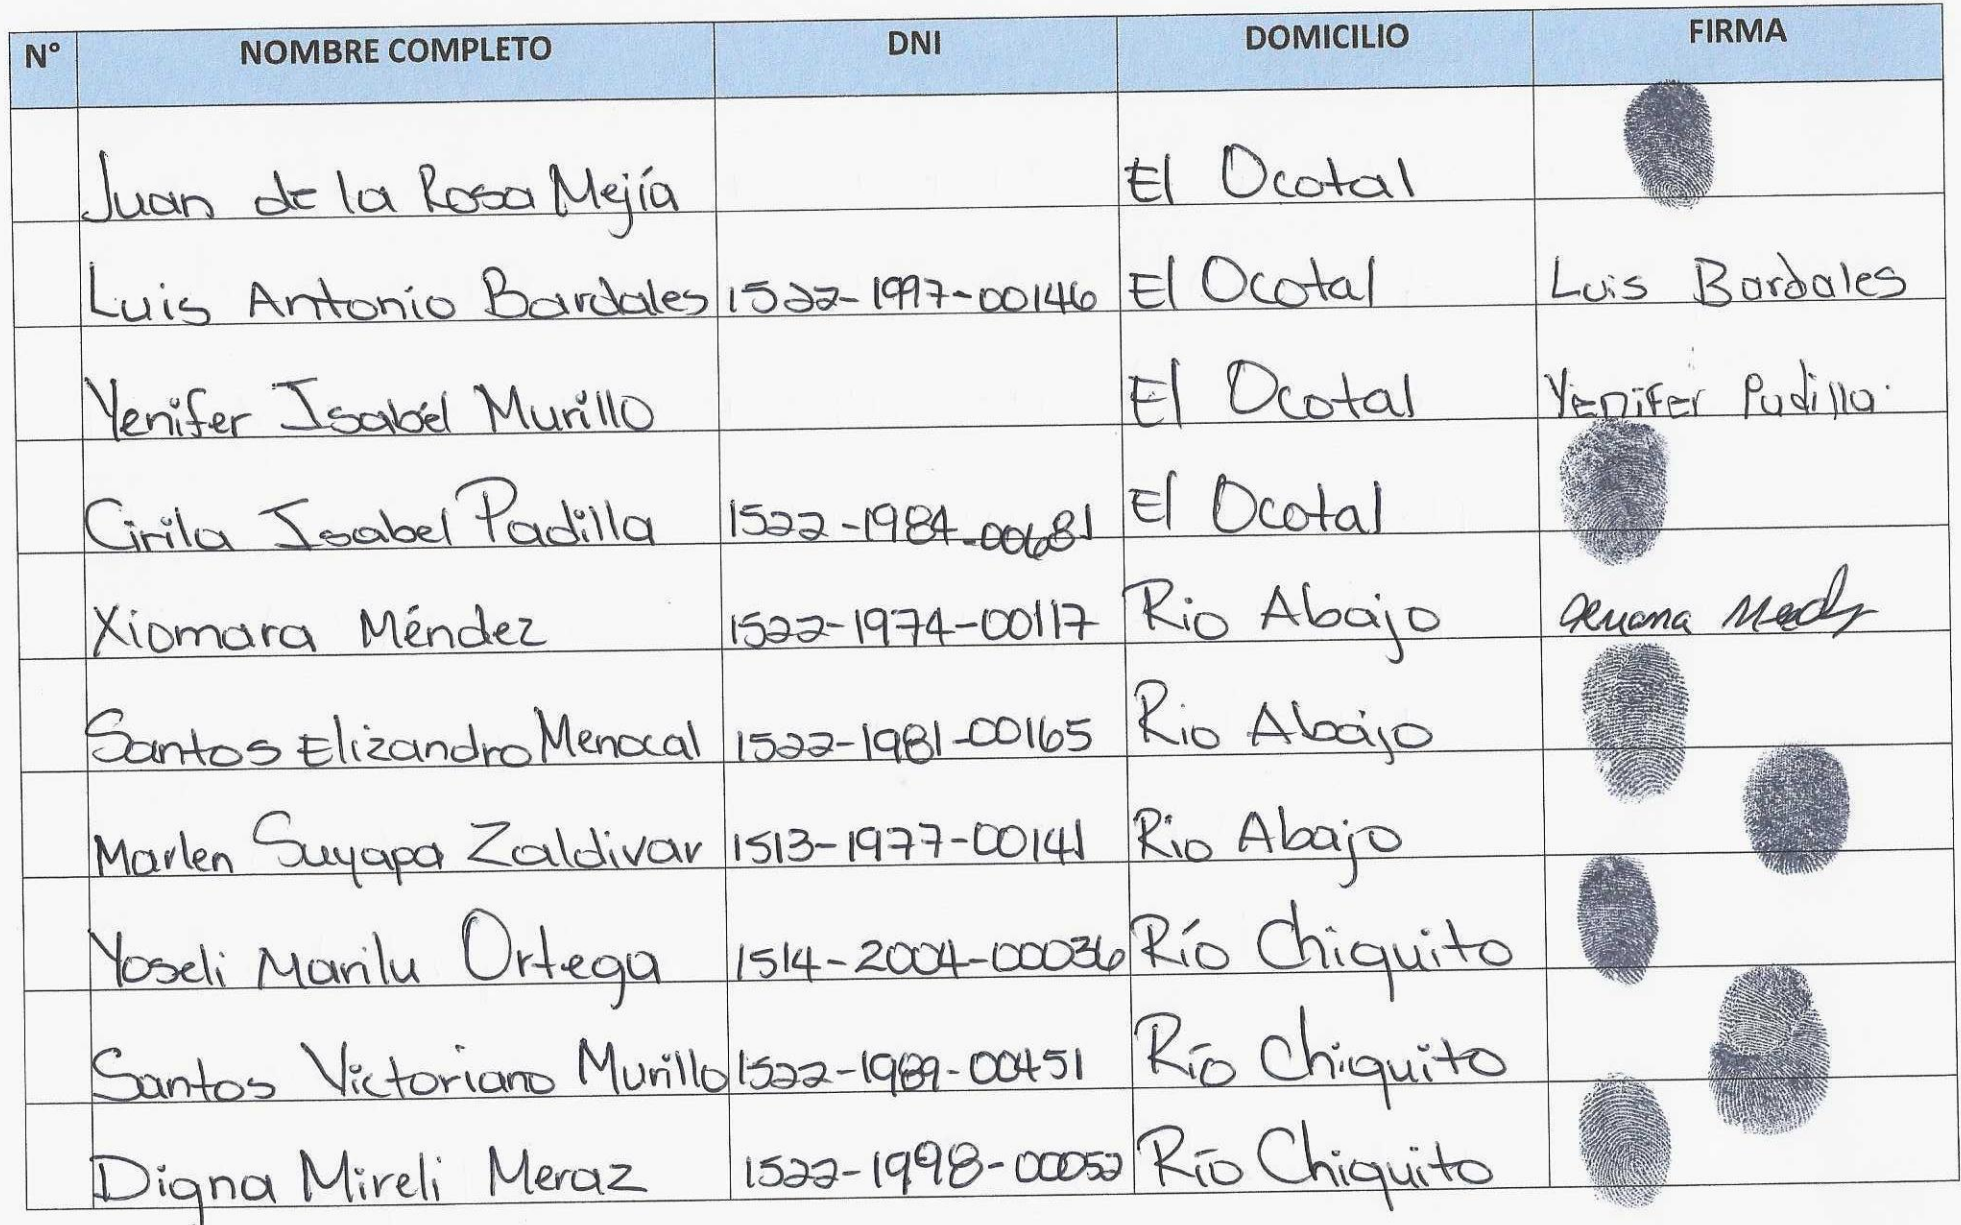 N° NOMBRE COMPLETO DNI DOMICILIO FIRMA
Juan de la Rosa Mejía El Ocotal
Luis Antonio Bardales 1522-1997-00146 El Ocotal Luis Bardales
Yenifer Isabel Murillo El Ocotal Yenifer Padilla
Cirila Isabel Padilla 1522-1984-00681 El Ocotal
Xiomara Méndez 1522-1974-00117 Rio Abajo
Santos Elizandro Menocal 1522-1981-00165 Rio Abajo
Marlen Suyapa Zaldivar 1513-1977-00141 Rio Abajo
Yoseli Marilu Ortega 1514-2004-00036 Río Chiquito
Santos Victoriano Murillo 1522-1989-00451 Río Chiquito
Digna Mireli Meraz 1522-1998-00052 Río Chiquito